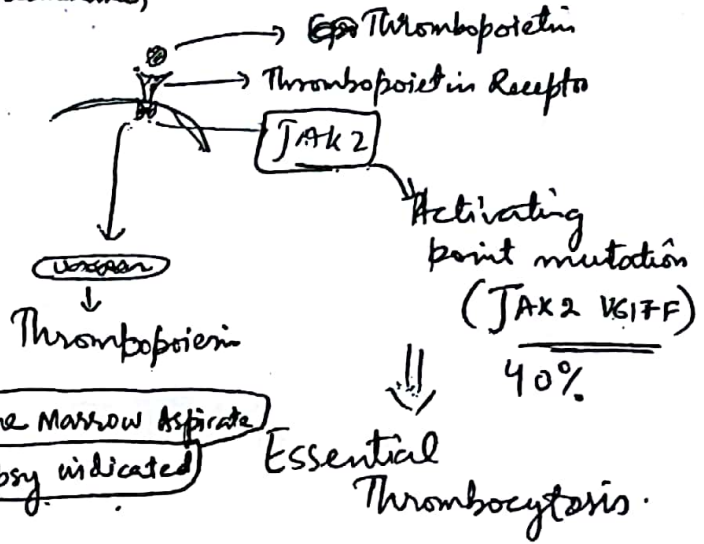 Thrombopoietin
Thrombopoietin Receptor
JAK2
Activating
point mutation
(JAK2 V617F)
40%
Thrombopoiesis
e Marrow Aspirate
psy indicated
Essential
Thrombocytosis.